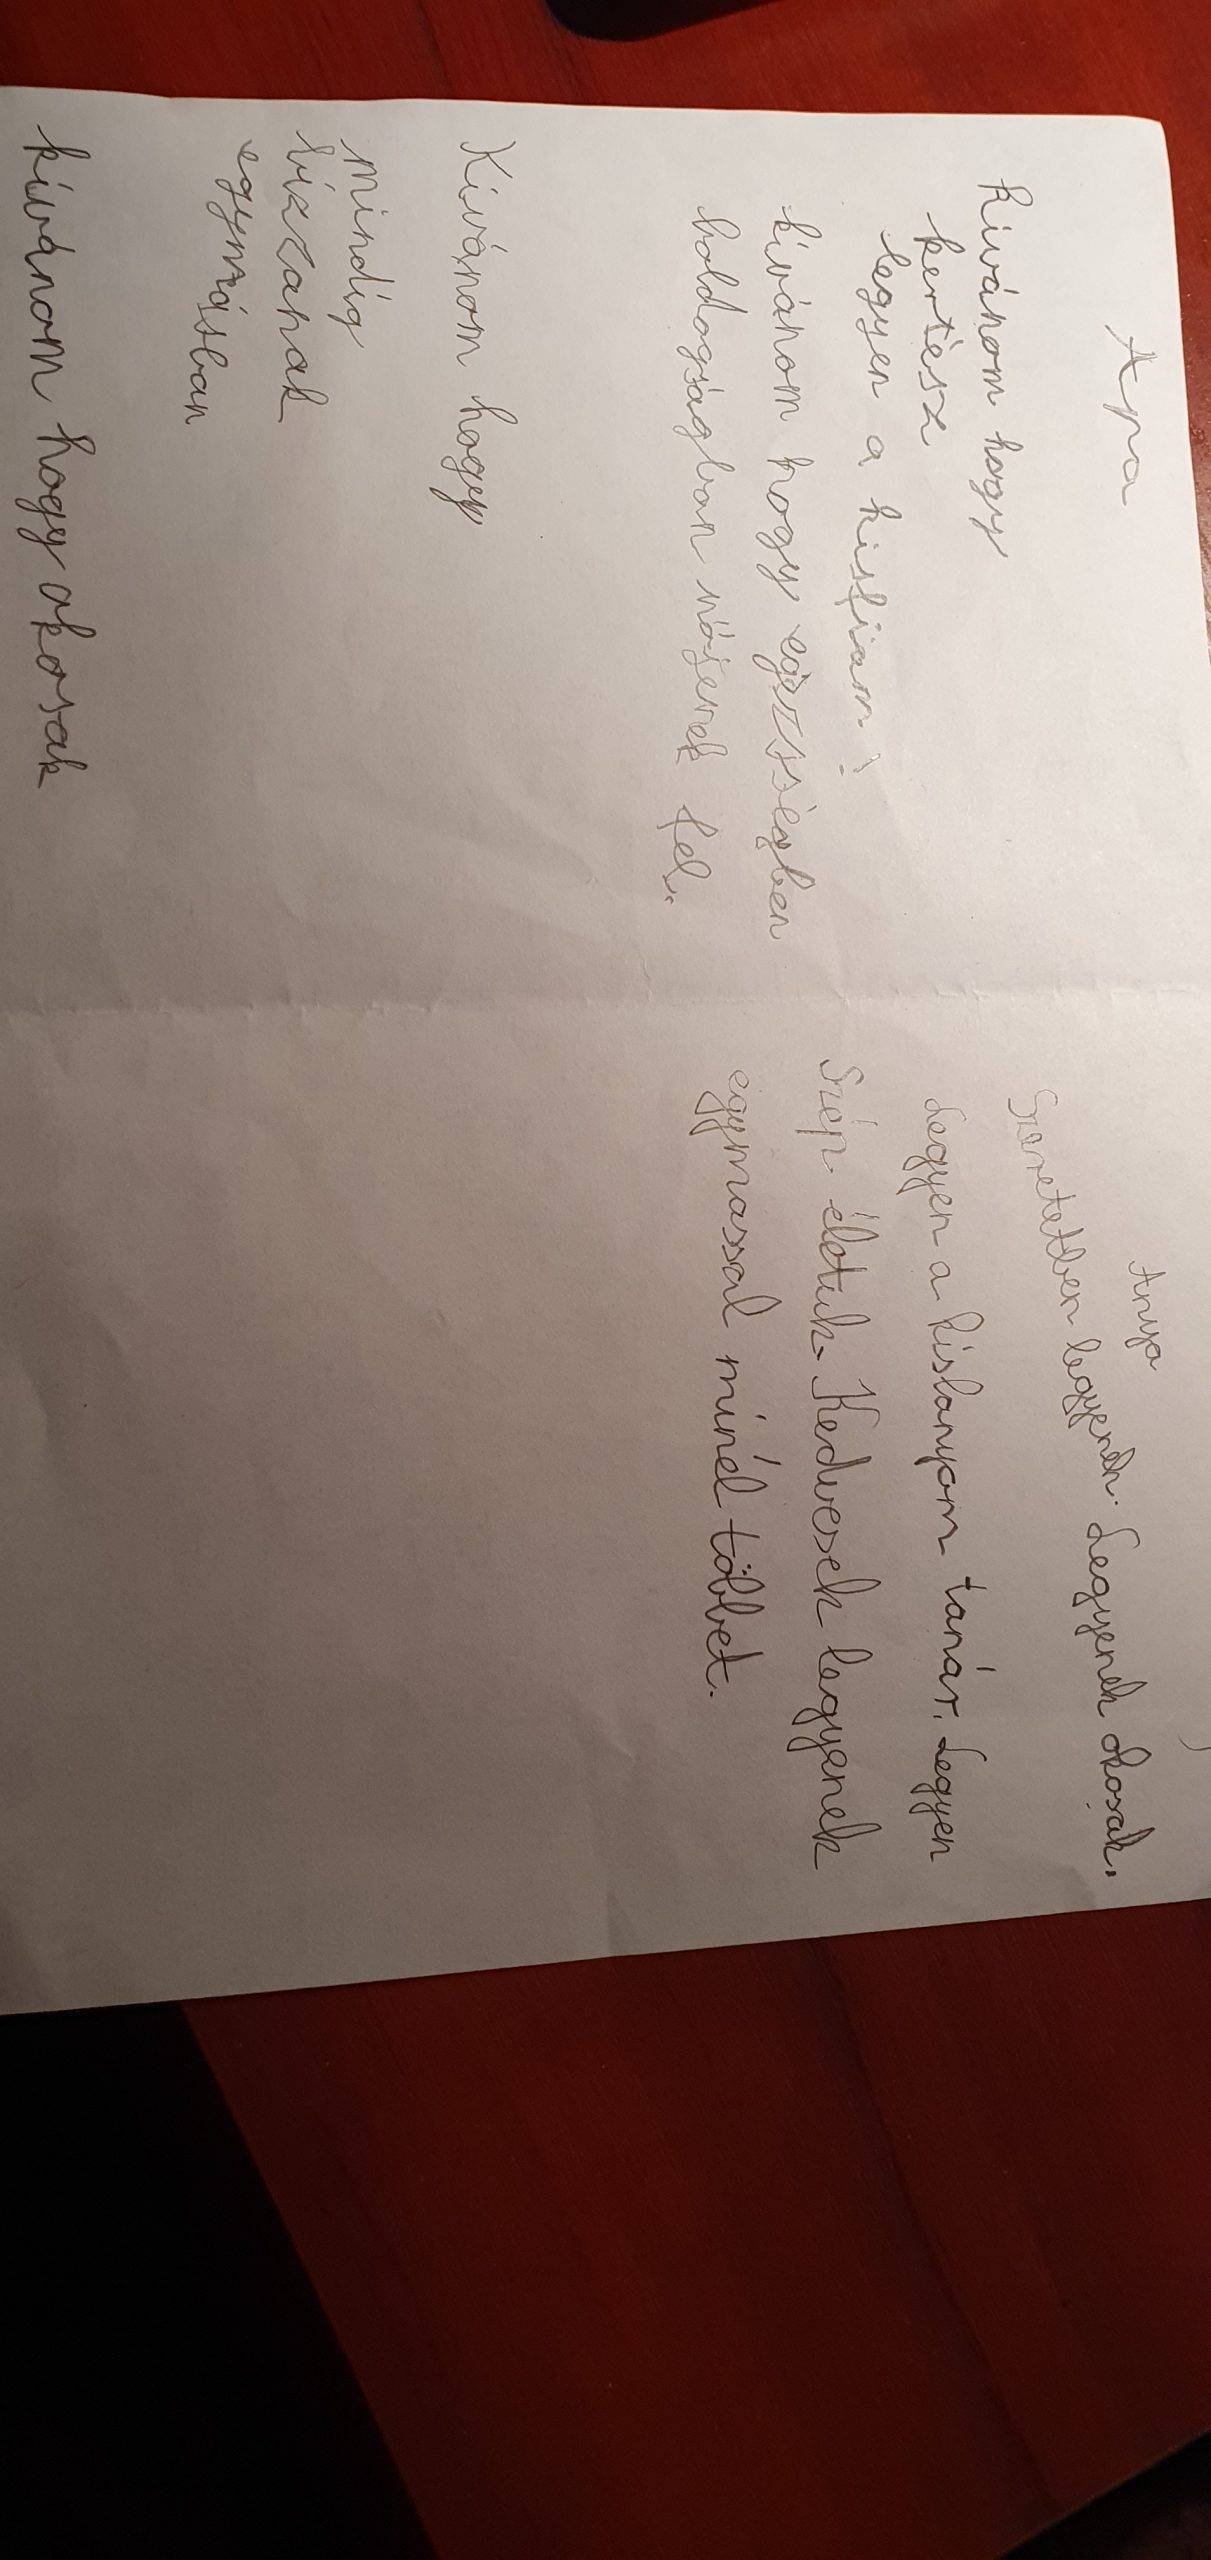 Apa
Kívánom hogy
kertész
legyen a kisfiam!
kívánom hogy egézsségben
boldogságban nőjenek fel.
Kívánom hogy
mindíg
bízzanak
egymásban
kívánom hogy okosak
Anya
Szeretetben legyenek. Legyenek okosak.
Legyen a kislanyom tanár. Legyen
Szép életük. Kedvesek legyenek
egymassal minél többet.